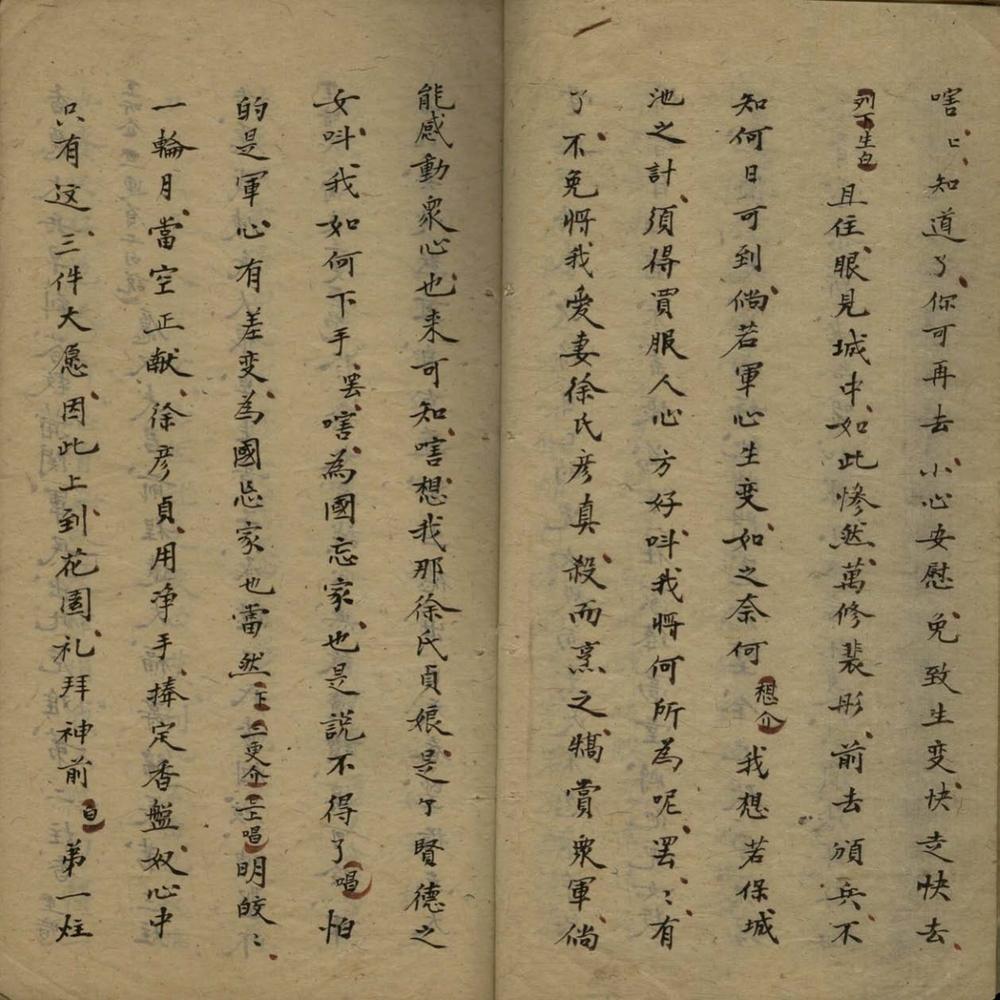 嗐〻知道了你可再去小心安慰免致生变快走快去
列下生白且住眼見城中如此惨然萬修裴彤前去頒兵不
知何日可到倘若軍心生变如之奈何想介我想若保城
池之計須得買服人心方好呌我將何所為呢罢〻有
了不免將我愛妻徐氏彦真殺而烹之犒賞衆軍倘
能感動衆心也未可知嗐想我那徐氏貞娘是个賢德之
女呌我如何下手罢嗐為國忘家也是説不得了唱怕
的是軍心有差变為國忘家也當然下二更介上唱明皎〻
一輪月當空正献徐彦貞用净手捧定香盤奴心中
只有这三件大愿因此上到花園礼拜神前白第一炷